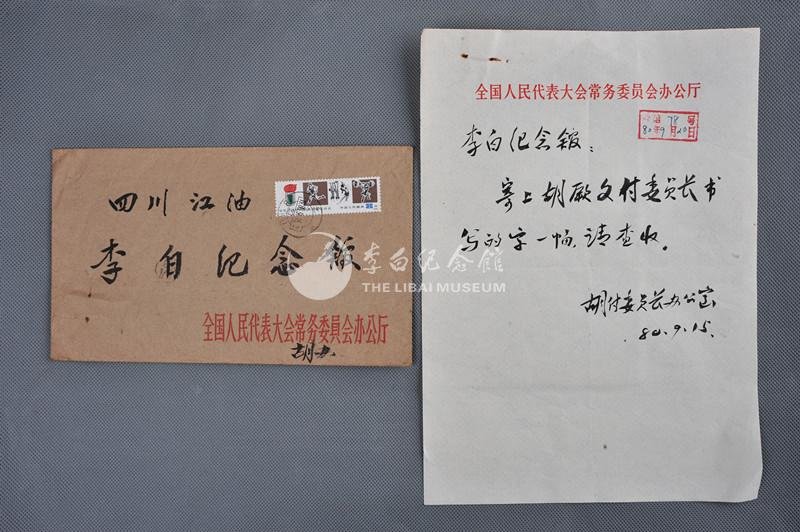 四川 江油
李白纪念馆
全国人民代表大会常务委员会办公厅
胡办
全国人民代表大会常务委员会办公厅
78号
80年9月20日
李白纪念馆:
寄上胡厥文付委员长书
写的字一幅,请查收。
胡付委员长办公室
80.9.15.
李白纪念馆
THE LIBAI MUSEUM